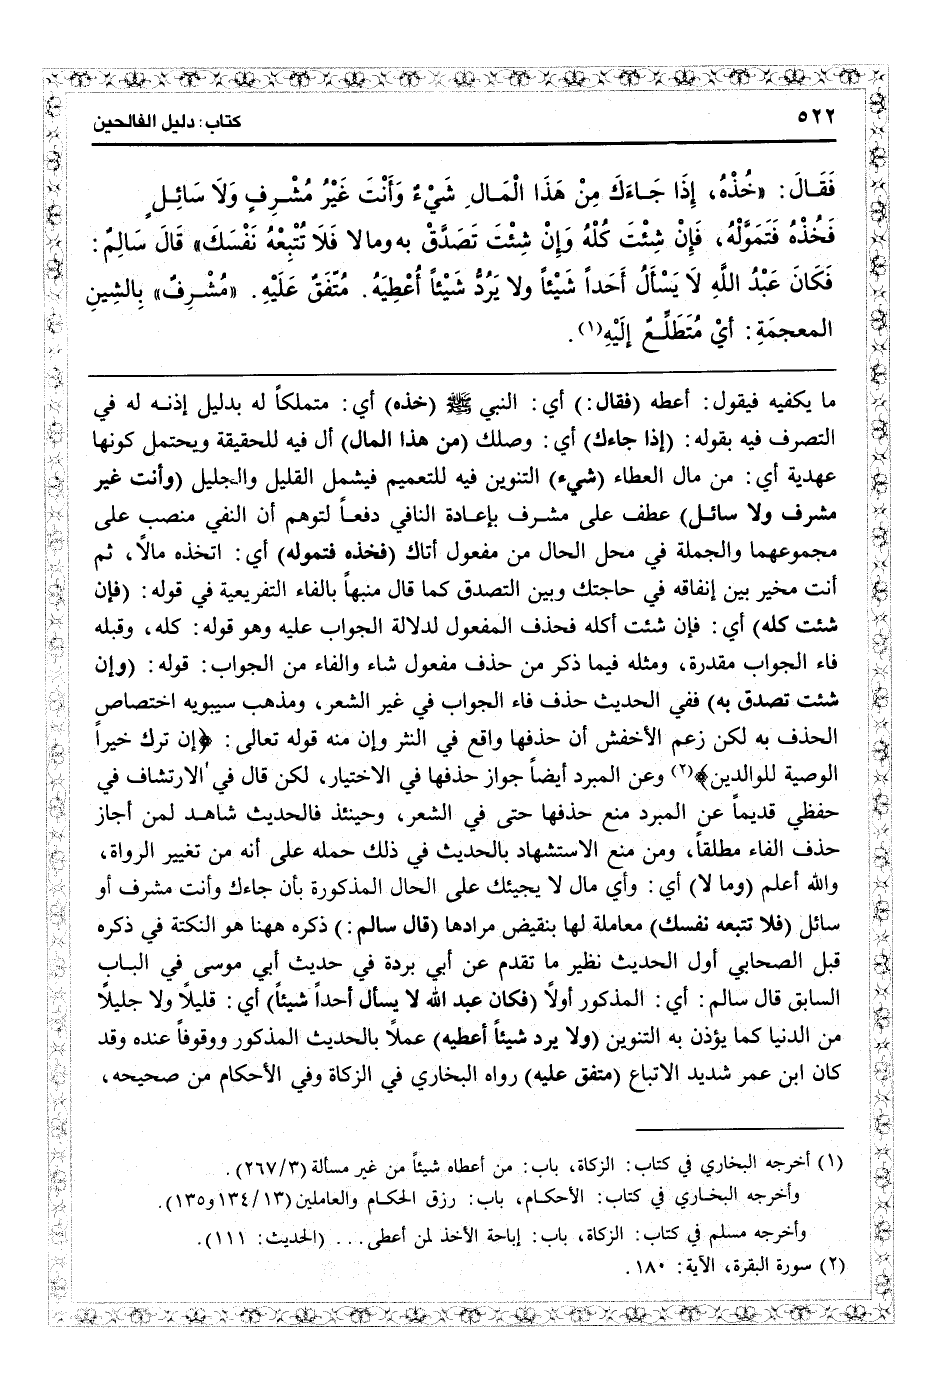 ٥٢٢
كتاب: دليل الفالحين
فَقَالَ: «خُذْهُ، إِذَا جَاءَكَ مِنْ هَذَا الْمَالِ شَيْءٌ وَأَنْتَ غَيْرُ مُشْرِفٍ وَلَا سَائِلٍ
فَخُذْهُ فَتَمَوَّلْهُ، فَإِنْ شِئْتَ كُلْهُ وَإِنْ شِئْتَ تَصَدَّقْ به ومالا فَلَا تُتْبِعْهُ نَفْسَكَ» قَالَ سَالِمٌ:
فَكَانَ عَبْدُ اللَّهِ لَا يَسْأَلُ أَحَداً شَيْئاً ولا يَرُدُّ شَيْئاً أُعْطِيَهُ. مُتَّفَقٌ عَلَيْهِ. «مُشْرِفٌ» بِالشِينِ
المعجمَةِ: أيْ مُتَطَلِّعٌ إِلَيْهِ(١).
ما يكفيه فيقول: أعطه (فقال:) أي: النبي ﷺ (خذه) أي: متملكاً له بدليل إذنه له في
التصرف فيه بقوله: (إذا جاءك) أي: وصلك (من هذا المال) أل فيه للحقيقة ويحتمل كونها
عهدية أي: من مال العطاء (شيء) التنوين فيه للتعميم فيشمل القليل والجليل (وأنت غير
مشرف ولا سائل) عطف على مشرف بإعادة النافي دفعاً لتوهم أن النفي منصب على
مجموعهما والجملة في محل الحال من مفعول أتاك (فخذه فتموله) أي: اتخذه مالاً، ثم
أنت مخير بين إنفاقه في حاجتك وبين التصدق كما قال منبهاً بالفاء التفريعية في قوله: (فإن
شئت كله) أي: فإن شئت أكله فحذف المفعول لدلالة الجواب عليه وهو قوله: كله، وقبله
فاء الجواب مقدرة، ومثله فيما ذكر من حذف مفعول شاء والفاء من الجواب: قوله: (وإن
شئت تصدق به) ففي الحديث حذف فاء الجواب في غير الشعر، ومذهب سيبويه اختصاص
الحذف به لكن زعم الأخفش أن حذفها واقع في النثر وإن منه قوله تعالى: ﴿إن ترك خيراً
الوصية للوالدين﴾(٢) وعن المبرد أيضاً جواز حذفها في الاختيار، لكن قال في الارتشاف في
حفظي قديماً عن المبرد منع حذفها حتى في الشعر، وحينئذ فالحديث شاهد لمن أجاز
حذف الفاء مطلقاً، ومن منع الاستشهاد بالحديث في ذلك حمله على أنه من تغيير الرواة،
والله أعلم (وما لا) أي: وأي مال لا يجيئك على الحال المذكورة بأن جاءك وأنت مشرف أو
سائل (فلا تتبعه نفسك) معاملة لها بنقيض مرادها (قال سالم:) ذكره ههنا هو النكتة في ذكره
قبل الصحابي أول الحديث نظير ما تقدم عن أبي بردة في حديث أبي موسى في الباب
السابق قال سالم: أي: المذكور أولاً (فكان عبد الله لا يسأل أحداً شيئاً) أي: قليلاً ولا جليلاً
من الدنيا كما يؤذن به التنوين (ولا يرد شيئاً أعطيه) عملاً بالحديث المذكور ووقوفاً عنده وقد
كان ابن عمر شديد الاتباع (متفق عليه) رواه البخاري في الزكاة وفي الأحكام من صحيحه،
(١) أخرجه البخاري في كتاب: الزكاة، باب: من أعطاه شيئاً من غير مسألة (٢٦٧/٣).
وأخرجه البخاري في كتاب: الأحكام، باب: رزق الحكام والعاملين (١٣٤/١٣ و١٣٥).
وأخرجه مسلم في كتاب: الزكاة، باب: إباحة الأخذ لمن أعطى... (الحديث: ١١١).
(٢) سورة البقرة، الآية: ١٨٠.